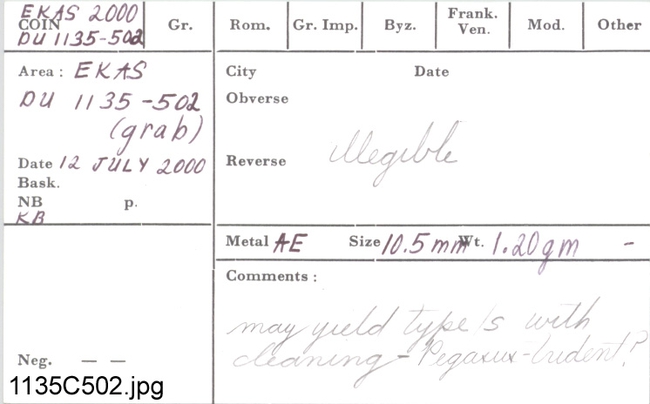 EKAS 2000
COIN
DU 1135-502
Gr.
Rom.
Gr. Imp.
Byz.
Frank. Ven.
Mod.
Other
Area : EKAS
DU 1135-502
(grab)
Date 12 JULY 2000
Bask.
NB p.
KB
Neg. — —
City Date
Obverse
Illegible
Reverse
Metal AE Size 10.5 mm Wt. 1.20gm –
Comments :
may yield type/s with
cleaning - Pegasus-trident?
1135C502.jpg